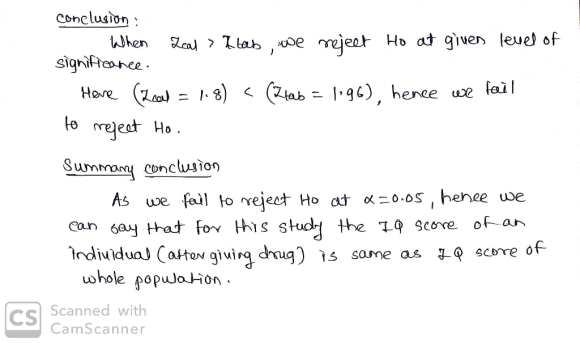 Conclusion :
When Zcal > Ztab, we reject Ho at given level of
significance.
Here (Zcal = 1.8) < (Ztab = 1.96), hence we fail
to reject Ho.
Summary conclusion
As we fail to reject Ho at α=0.05, hence we
can say that for this study the IQ score of an
individual (after giving drug) is same as IQ score of
whole population.
CS Scanned with
CamScanner